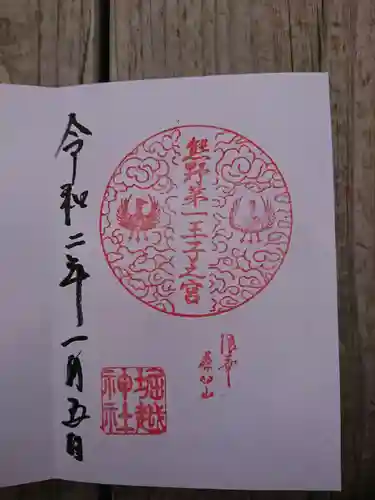 熊野第一王子之宮
堀越
神社
令和二年一月五日